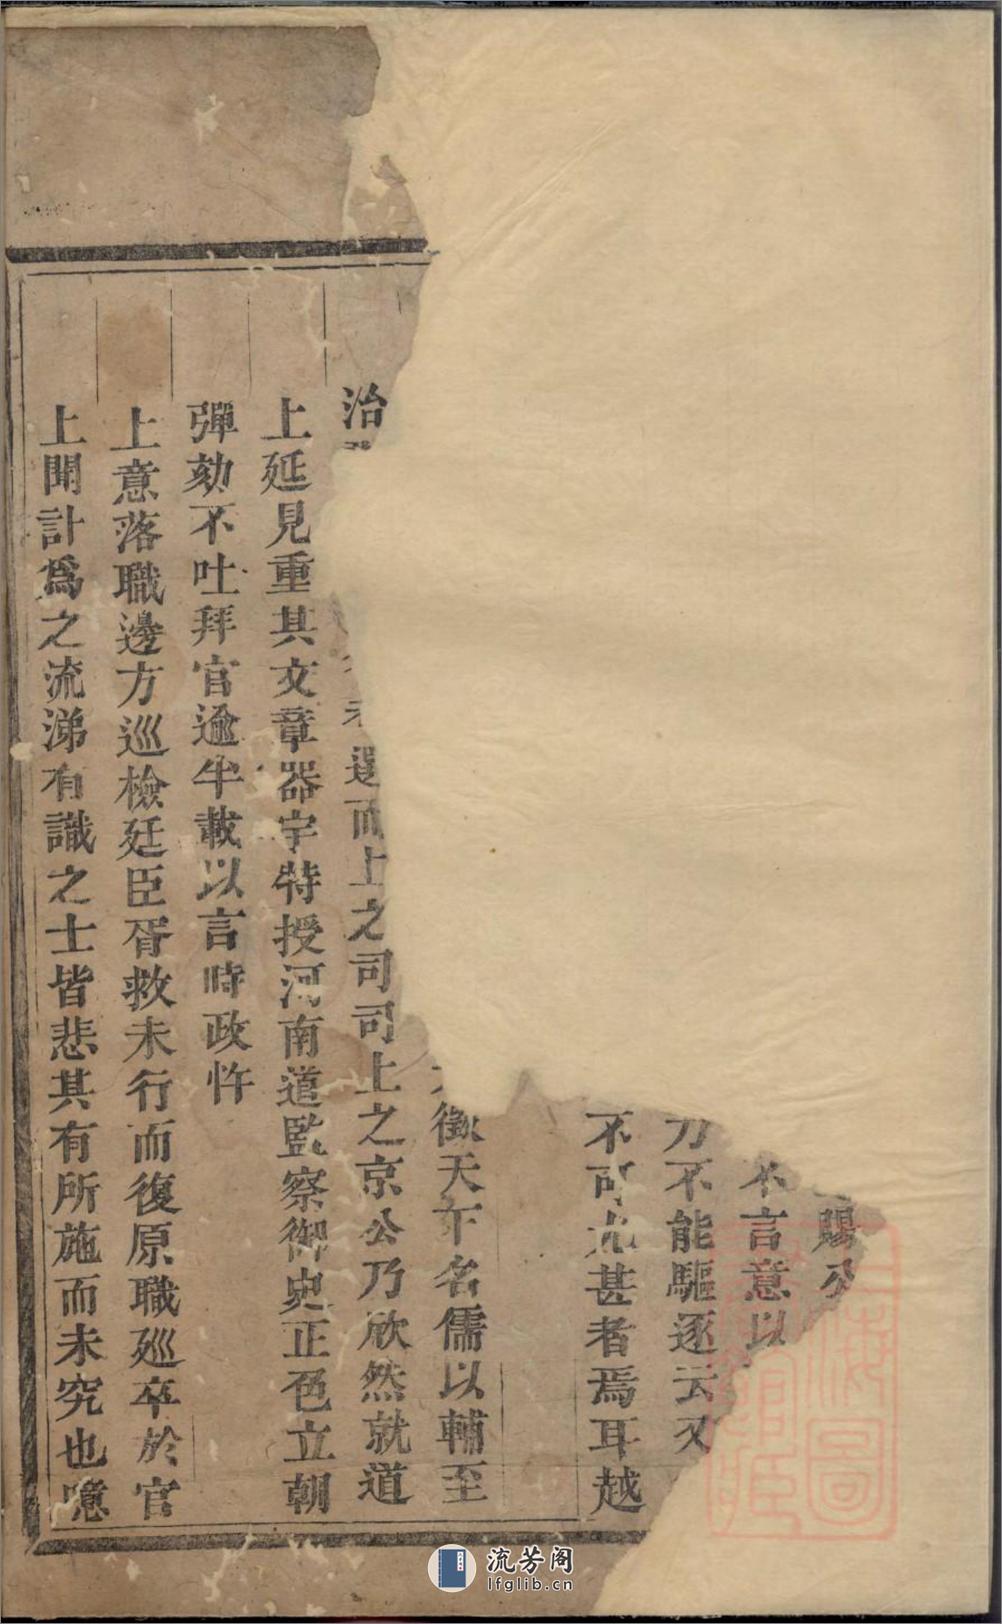 賜公
不言意以
力不能驅逐云又
不可尤甚者焉耳越
徵天下名儒以輔至
治
選而上之司司上之京公乃欣然就道
上延見重其文章器宇特授河南道監察御史正色立朝
彈劾不吐拜官逾半載以言時政忤
上意落職邊方巡檢廷臣胥救未行而復原職廵卒於官
上聞訃爲之流涕有識之士皆悲其有所施而未究也噫
上海圖
書館藏
流芳阁
lfglib.cn